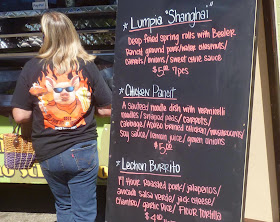 * Lumpia "Shanghai"
Deep fried spring rolls with Beeler
Ranch ground pork/water chestnuts/
carrots/onions/sweet chile sauce
$5.00 7pcs
* Chicken Pancit
A sauteed noodle dish with vermicelli
noodles/snap peas/carrots/
cabbage/ chicken/mushrooms
soy sauce/lemon juice/green onions
$5.00
* Lechon Burrito
Hour Roasted pork/jalapeños/
avocado salsa verde/jack cheese/
cilantro/garlic Rice/Flour Tortilla